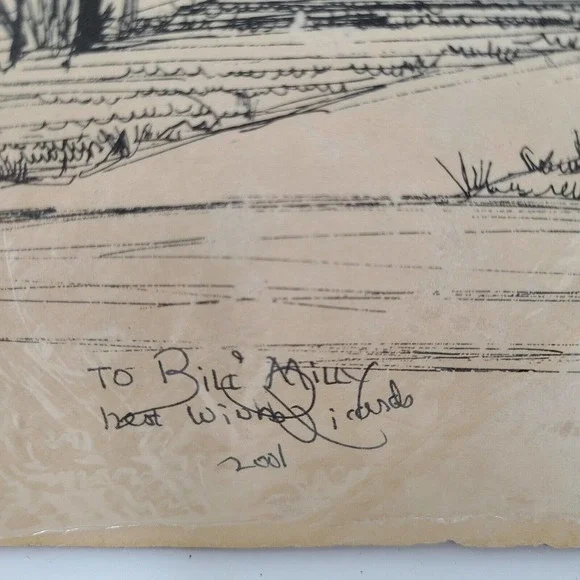 TO Bill & Milly
best wishes
2001